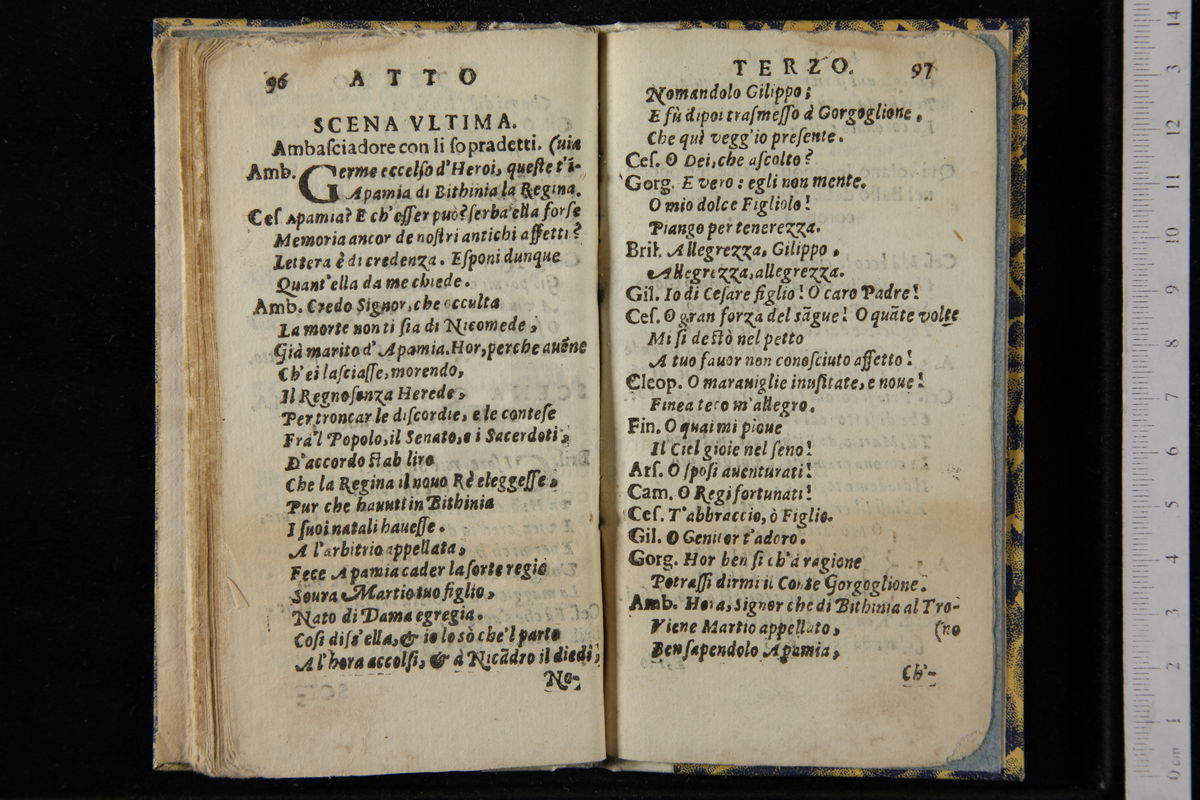 96 ATTO
SCENA VLTIMA.
Ambaſciadore con li ſopradetti. (uia
Amb. Germe eccelſo d'Heroi, queſte t'ī-
Apamia di Bithinia la Regina.
Ceſ Apamia? E ch'eſſer può? ſerba ella forſe
Memoria ancor de noſtri antichi affetti?
Lettera è di credenza. Eſponi dunque
Quant'ella da me chiede.
Amb. Credo Signor, che occulta
La morte non ti ſia di Nicomede,
Già marito d'Apamia. Hor, perche auēne
Ch'ei laſciaſſe, morendo,
Il Regno ſenza Herede,
Per troncar le diſcordie, e le conteſe
Frà'l Popolo, il Senato, e i Sacerdoti,
D'accordo ſtabliro
Che la Regina il nouo Rè eleggeſſe,
Pur che hauuti in Bithinia
I ſuoi natali haueſſe.
A l'arbitrio appellata,
Fece Apamia cader la ſorte regia
Soura Martio tuo figlio,
Nato di Dama egregia.
Coſi diſs'ella, & io lo sò che'l parto
A l'hora accolſi, & à Nicādro il diedi,
No-
TERZO. 97
Nomandolo Gilippo;
E fù dipoi traſmeſſo à Gorgoglione,
Che quì vegg'io preſente.
Ceſ. O Dei, che aſcolto?
Gorg. E vero: egli non mente.
O mio dolce Figliolo!
Piango per tenerezza.
Bril. Allegrezza, Gilippo,
Allegrezza, allegrezza.
Gil. Io di Ceſare figlio! O caro Padre!
Ceſ. O gran forza del sāgue! O quāte volte
Mi ſi deſtò nel petto
A tuo fauor non conoſciuto affetto!
Cleop. O marauiglie inuſitate, e noue!
Finea teco m'allegro.
Fin. O quai mi pioue
Il Ciel gioie nel ſeno!
Arſ. O ſpoſi auenturati!
Cam. O Regi fortunati!
Ceſ. T'abbraccio, ò Figlio.
Gil. O Genitor t'adoro.
Gorg. Hor ben ſi ch'à ragione
Potraſſi dirmi il Conte Gorgoglione.
Amb. Hora, Signor che di Bithinia al Tro-
Viene Martio appellato, (no
Ben ſapendolo Apamia,
Ch'-